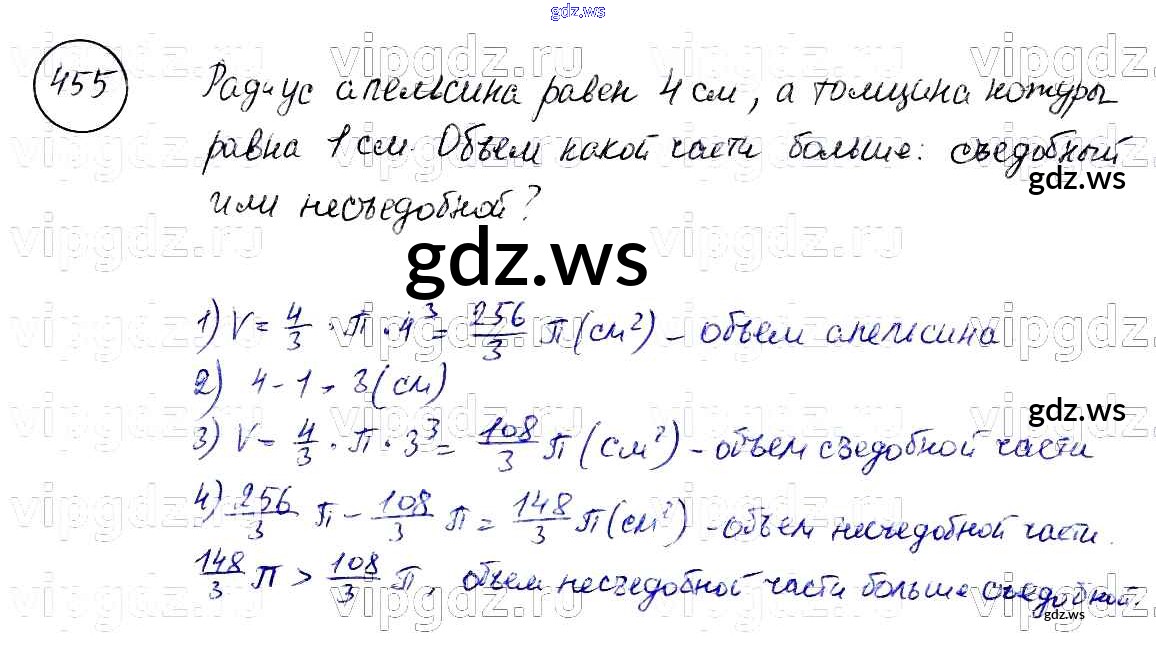 gdz.ws
455
Радиус апельсина равен 4 см, а толщина кожуры
равна 1 см. Объем какой части больше: съедобный
gdz.ws
или несъедобной?
gdz.ws
1) V = 4/3 · π · 4³ = 256/3 π (см²) – объем апельсина
2) 4 - 1 = 3 (см)
gdz.ws
3) V = 4/3 · π · 3³ = 108/3 π (см²) – объем съедобной части
4) 256/3 π – 108/3 π = 148/3 π (см²) – объем несъедобной части.
148/3 π > 108/3 π, объем несъедобной части больше съедобной.
gdz.ws
vipgdz.ru